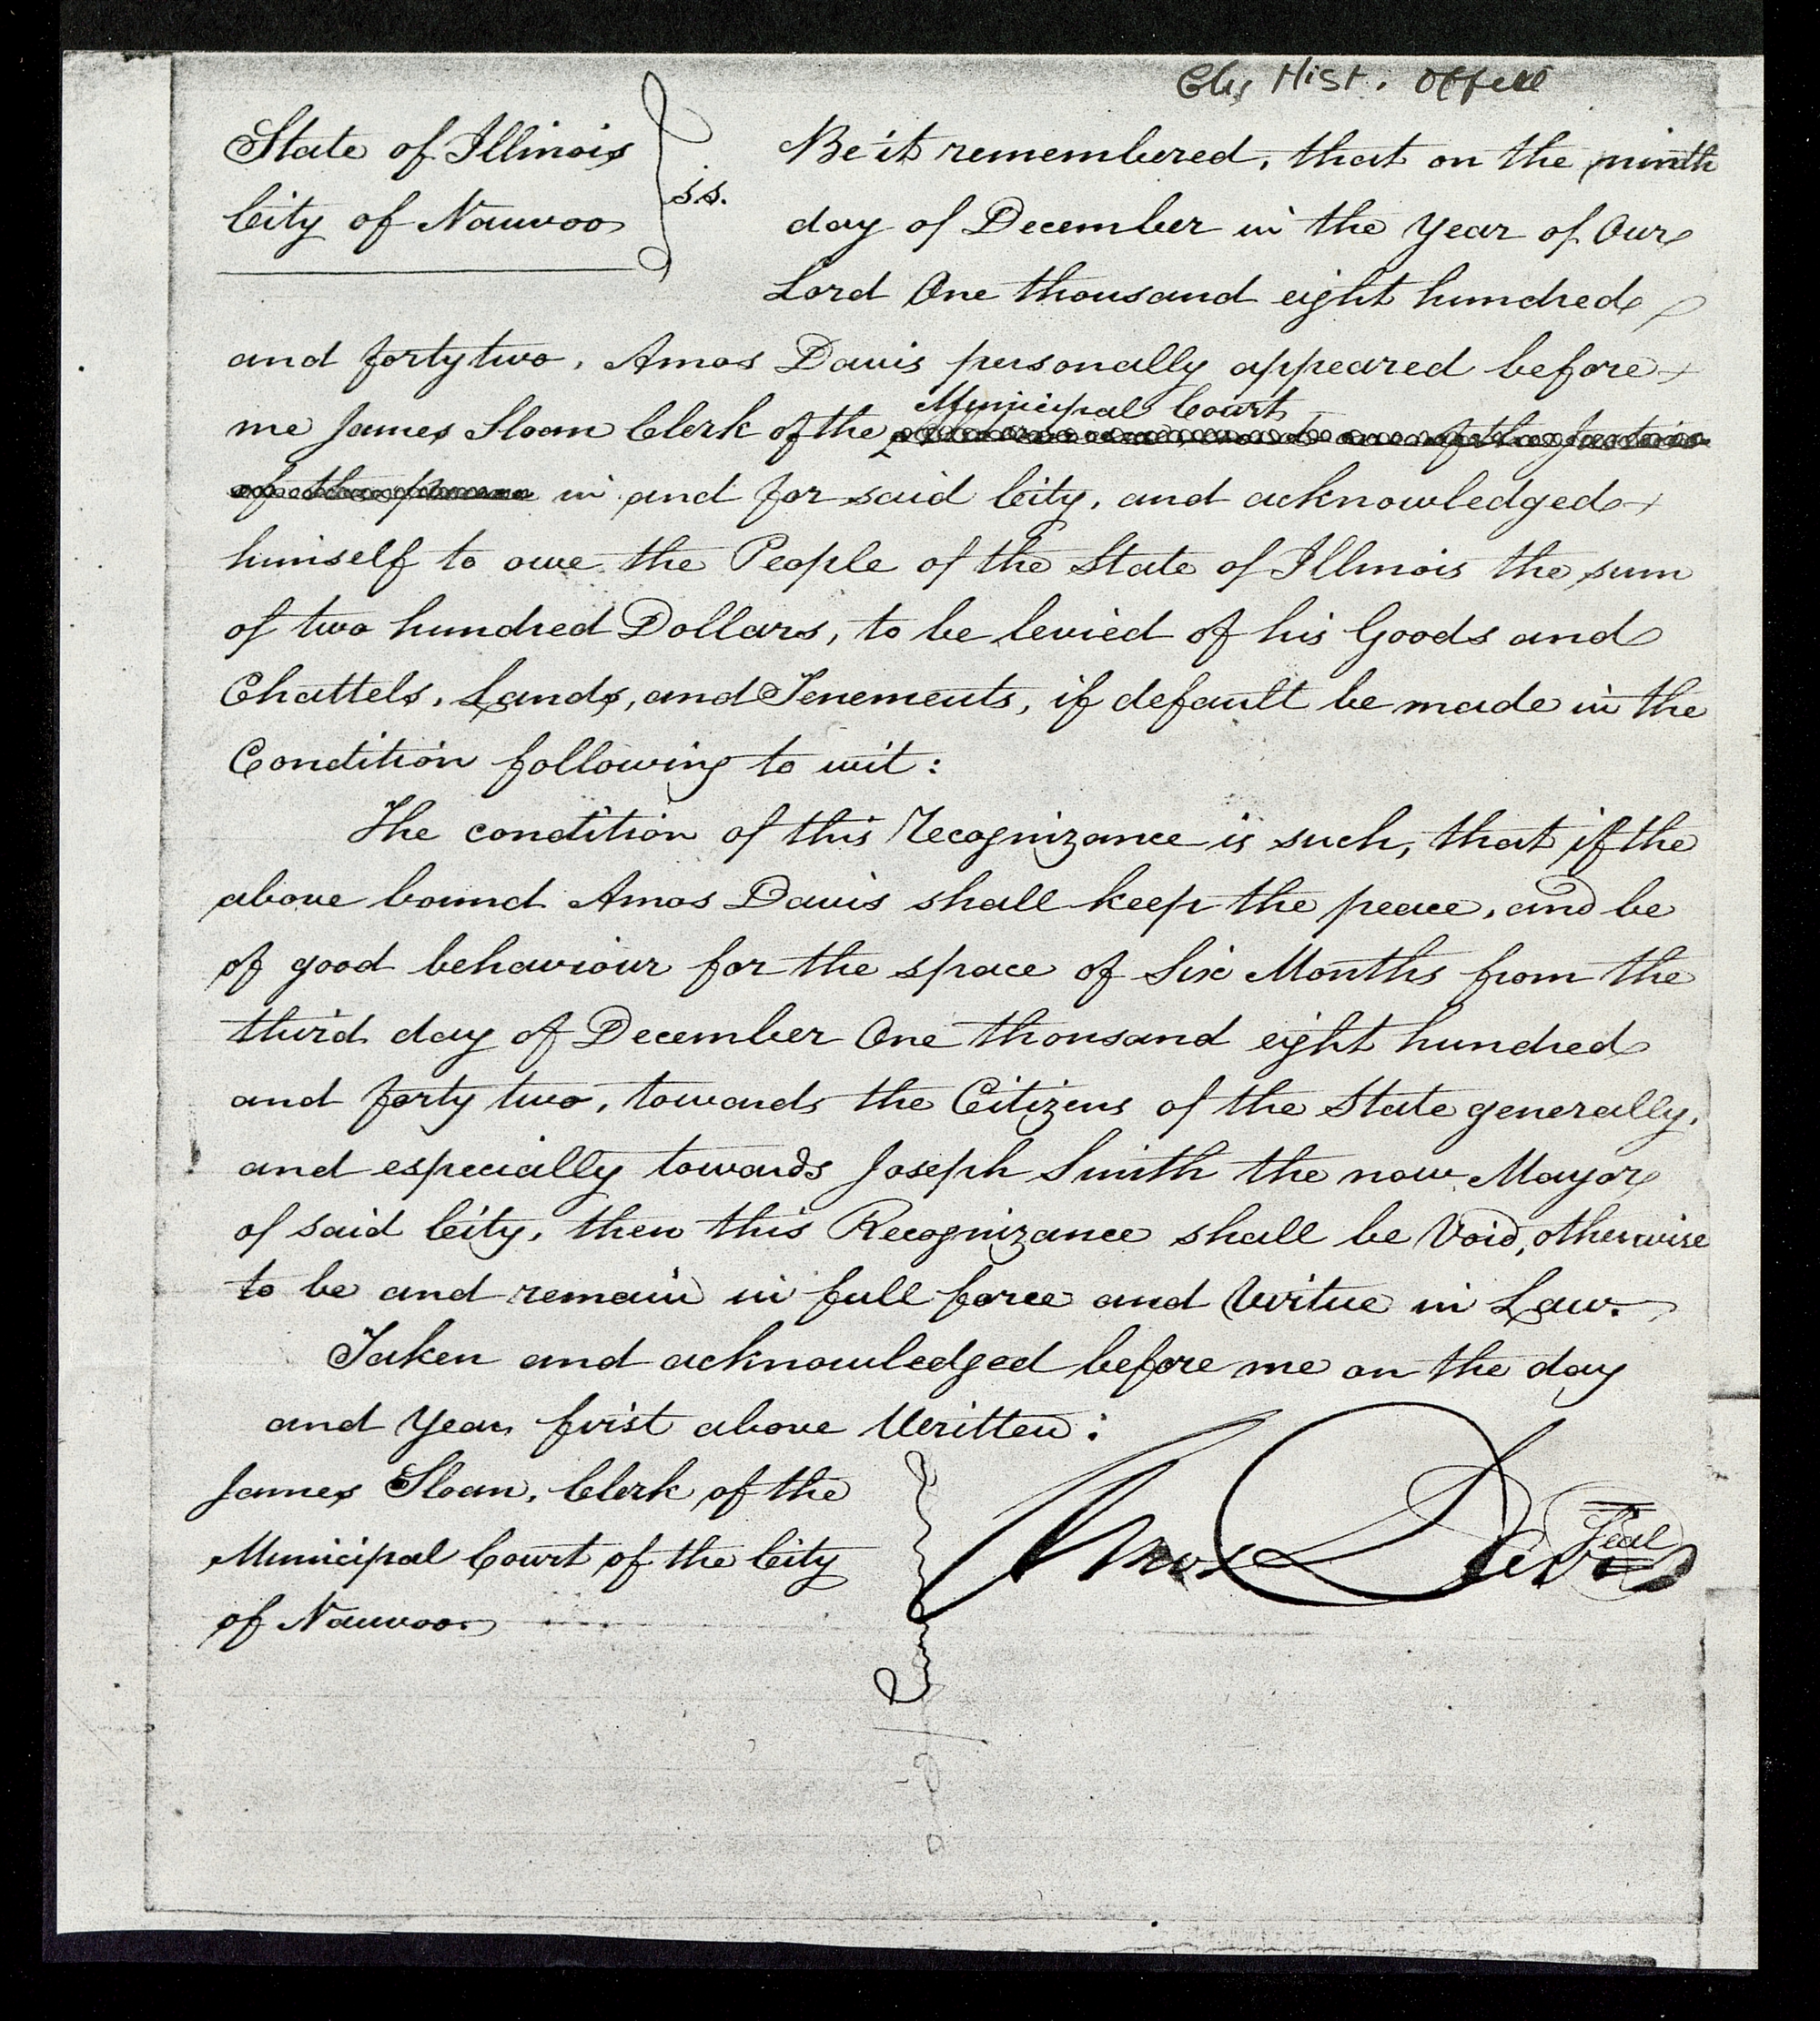 Chs Hist. Office
State of Illinois
City of Nauvoo
ss.
Be it remembered, that on the ninth
day of December in the Year of Our
Lord One thousand eight hundred
and forty two, Amos Davis personally appeared before
Municipal Court
me James Sloan Clerk of the
in and for said City, and acknowledged
himself to owe the People of the State of Illinois the sum
of two hundred Dollars, to be levied of his Goods and
Chattels, Lands, and Tenements, if default be made in the
Condition following to wit:
The condition of this Recognizance is such, that if the
above bound Amos Davis shall keep the peace, and be
of good behaviour for the space of Six Months from the
third day of December One thousand eight hundred
and forty two, towards the Citizens of the State generally,
and especially towards Joseph Smith the now Mayor
of said City, then this Recognizance shall be Void, otherwise
to be and remain in full force and Virtue in Law.
Taken and acknowledged before me on the day
and Year first above Written:
James Sloan, Clerk of the
Municipal Court of the City
of Nauvoo
Amos Davis
Seal